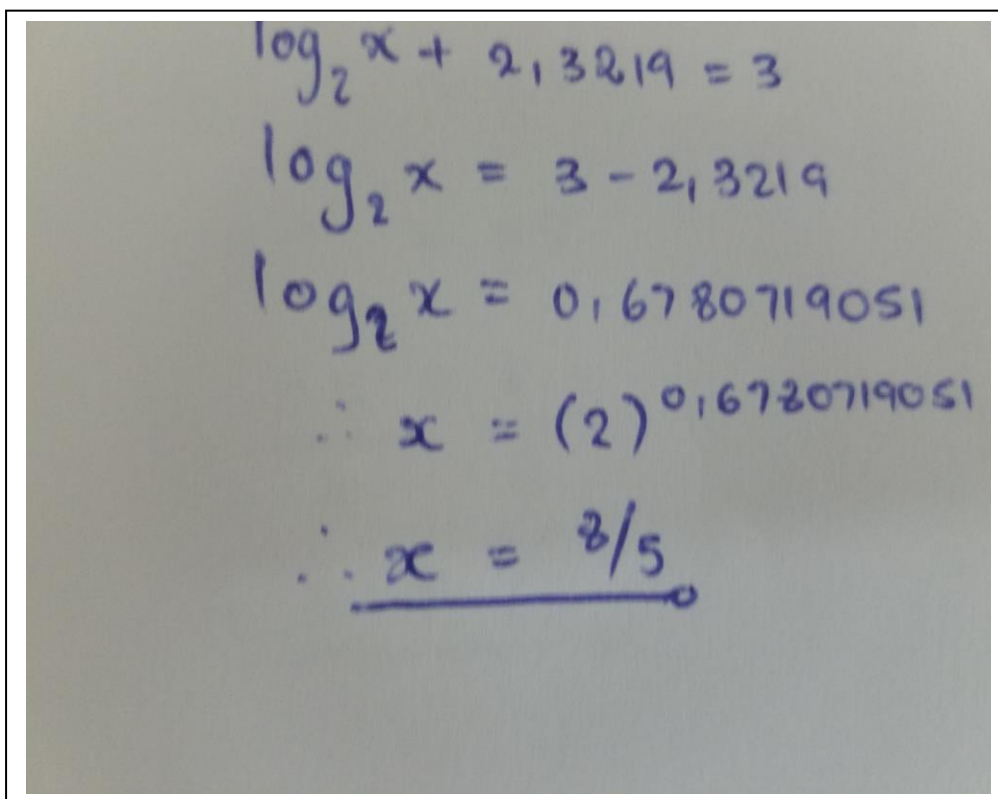 log₂ x + 2,3219 = 3
log₂ x = 3 - 2,3219
log₂ x = 0,6780719051
∴ x = (2)^0,6780719051
∴ x = 8/5